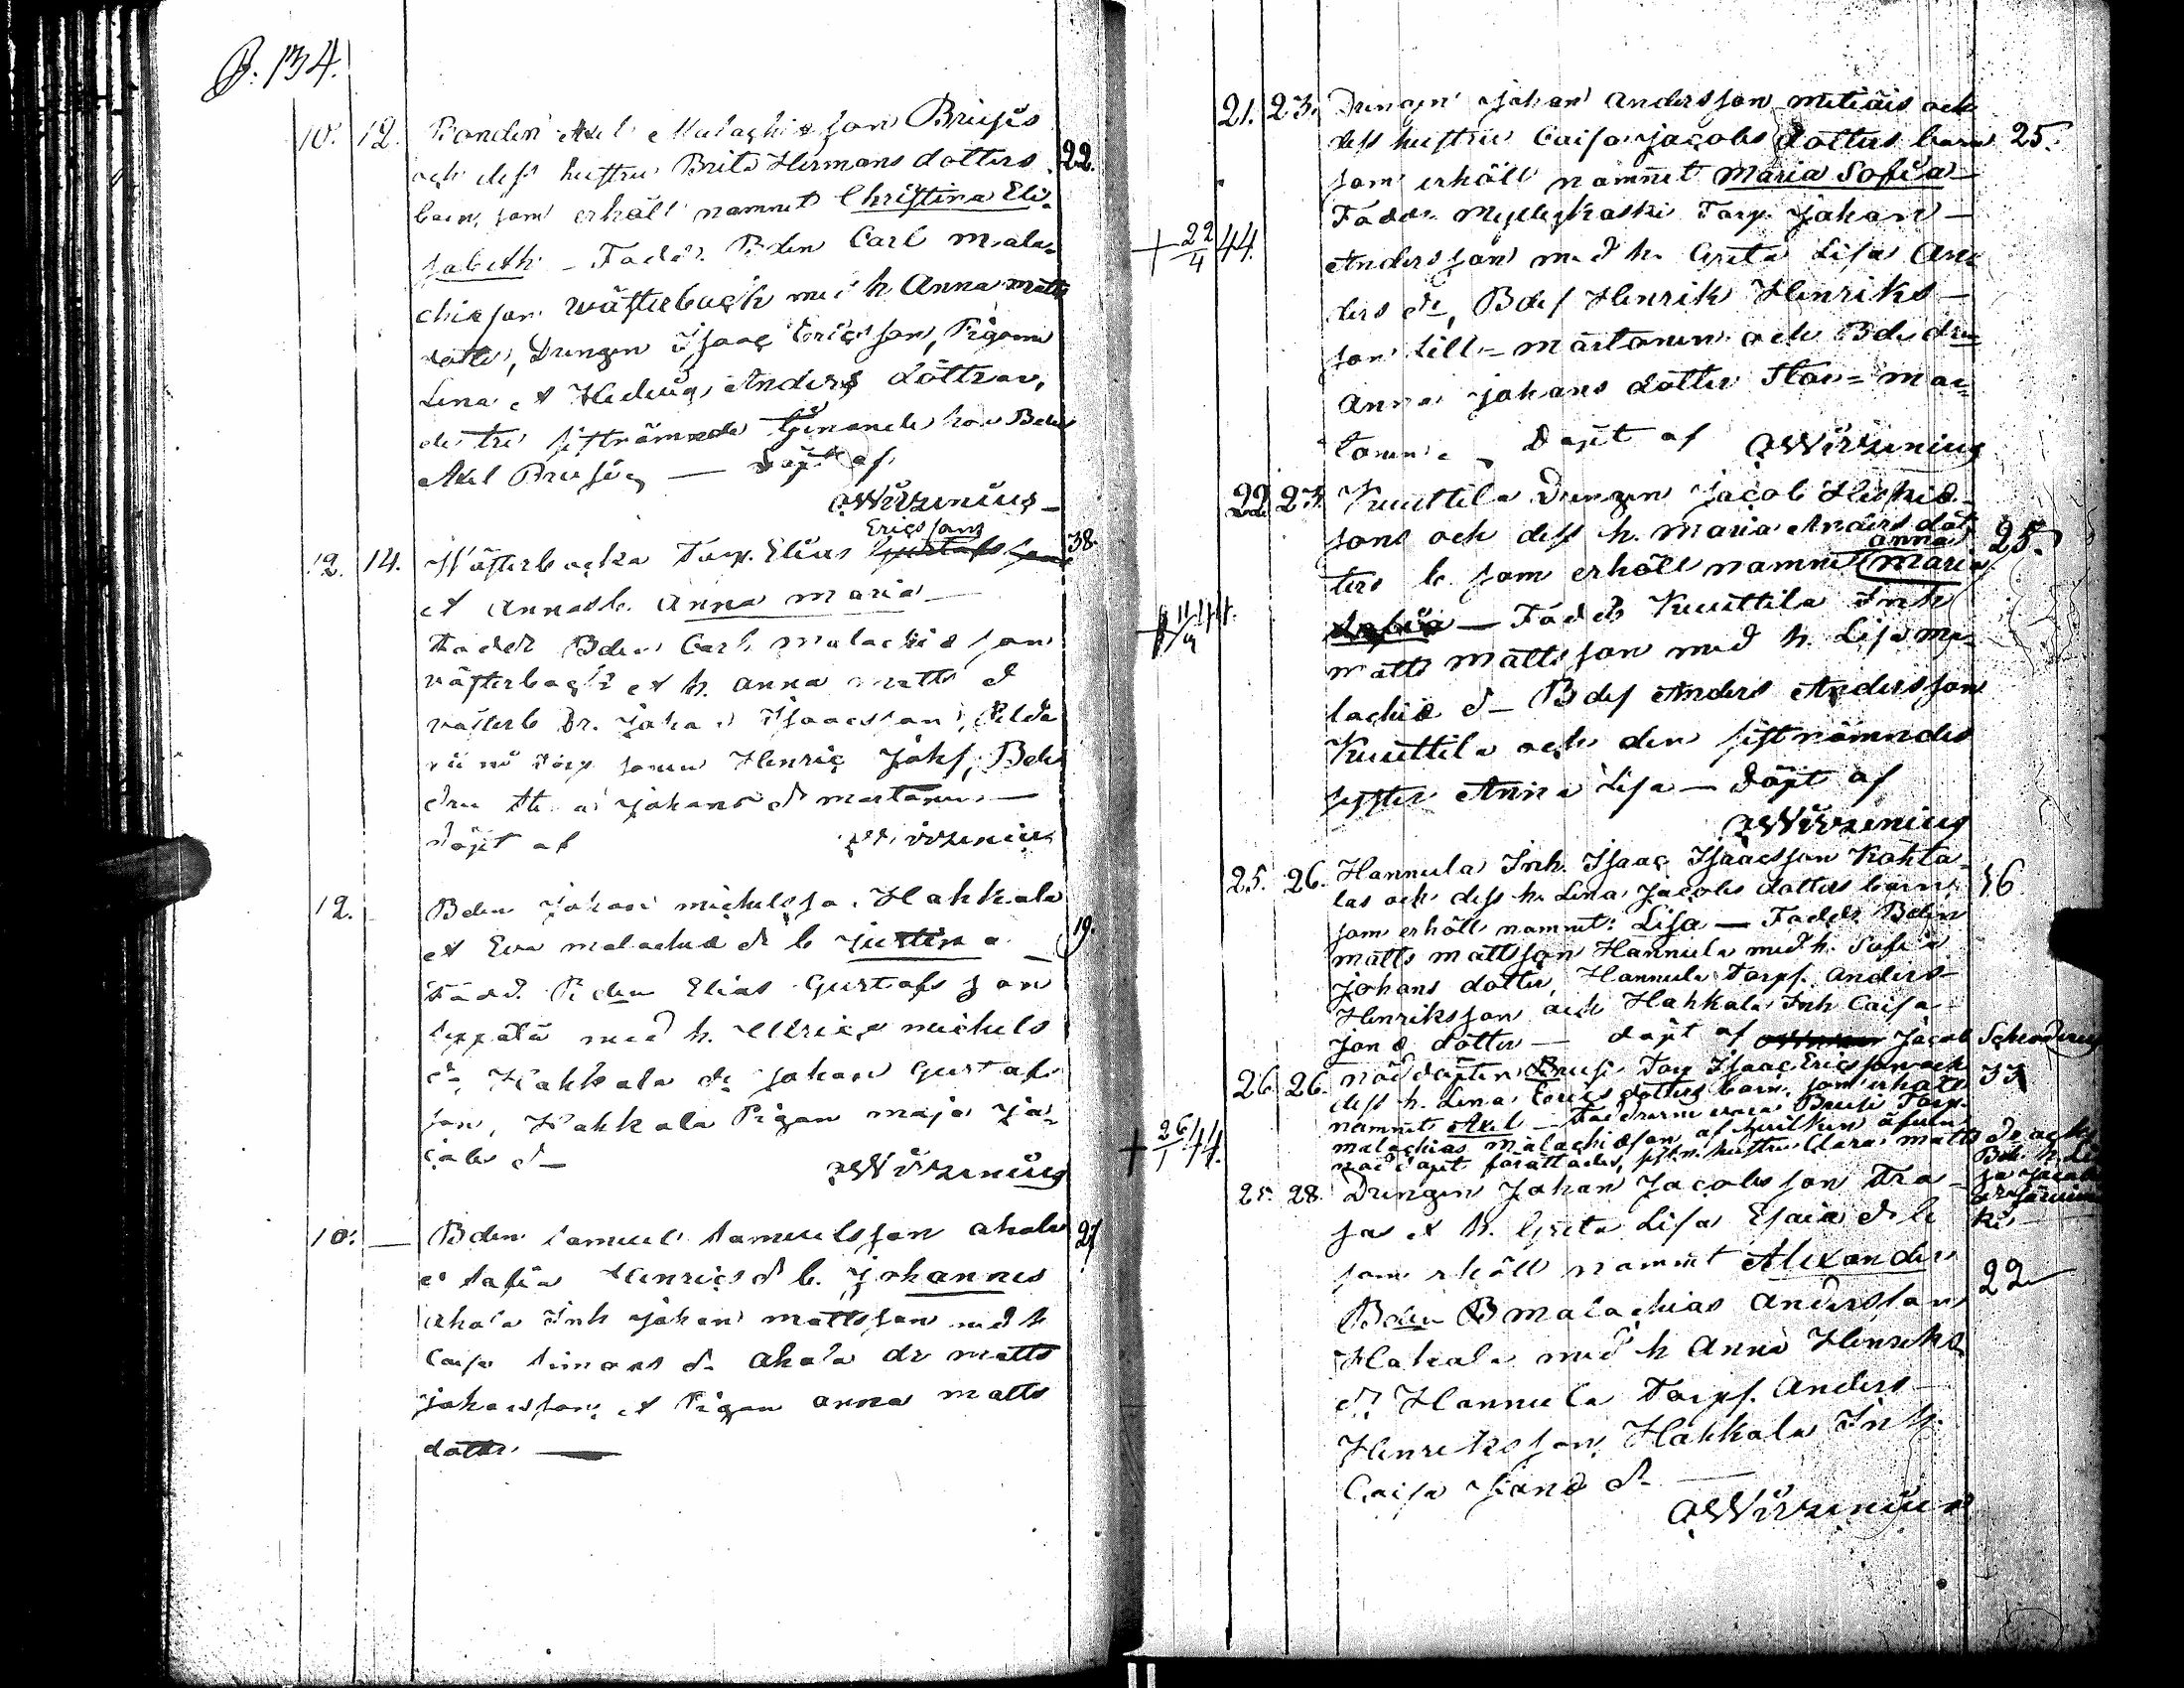 P. 134.
10. 12. Bonden Axel Malachiæ son Brusiis 22.
och dess hustru Brita Hermans dotters
barn, som erhöll namnet Christina Eli-
sabeth - Fadd. Bden Carl Mala-
chiæ son Wästerback med h. Anna Matts
dotter, Drengen Isaac Ericsson, Pigorna
Lena et Hedvig Anders döttrar,
de tre sistnämnde tjenande hos Bden
Axel Brusiis — Döpt af
OWirzenius -
Ericsson
12. 14. Wästerbacka Torp. Elias Gustafs son 38.
et Annas b. Anna Maria —
Fadd. Bden Carl Malachiæ son
Wästerback et h. Anna Matts d
Wästerb Dr. Johan Isaacsson,
Torp sonen Henric Johs, Bde
dru Anna Johans d Martonen —
Döpt af OWirzenius
12. - Bden Johan Michelsson Hahkala
et Eva Malachiæ d b. Justina — 19.
Fadd. Bden Elias Gustafs son
Seppälä med h. Ulrica Michels
d, Hahkala dr Johan Gustafs
son, Hahkala Pigan Maja Ja-
cobs d —
OWirzenius
10. — Bden Samuel Samuelsson Ahola 27
et Sofia Henrics d b. Johannes
Ahola Inh Johan Mattsson med h
Caisa Simons d. Ahola dr Matts
Johansson et Pigan Anna Matts
dotter —
21. 23. Drengen Johan Andersson Metiäis och
dess hustru Caisa Jacobs dotters barn 25.
som erhöll namnet Maria Sofia —
Fadd. Myllykoski Torp. Johan —
+ 22/4 44. Andersson med h. Greta Lisa An-
ders d, Bdes Henrik Henriks —
son Lill-Martonen och Bdedru
Anna Johans dotter Stor-Mar-
tonen - Döpt af OWirzenius
22. 23. Kuuttila Drengen Jacob Hiskiæ-
sons och dess h. Maria Anders dot- 25.
anna
ters b. som erhöll namnet Maria
Sofia — Fadd. Kuuttila Inh
Matts Mattsson med h. Lisa Ma-
lachiæ d — Bdes Anders Andersson
Kuuttila och den sistnämndes
syster Anna Lisa — Döpt af
OWirzenius
25. 26. Hannula Inh. Isaac Isaacsson Kohta-
las och dess h. Lena Jacobs dotters barn 36
som erhöll namnet: Lisa — Fadd. Bden
Matts Mattsson Hannula med h. Sofia
Johans dotter, Hannula Torps. Anders
Henriksson och Hahkala Inh Caisa
Jonæ dotter — Döpt af Jacob Schroderus
26. 26. Nöddöpten Brusi Torp Isaac Ericsson och 33
dess h. Lena Erics dotters barn, som erhöll
namnet Axel — Faddrarne voro Brusi Torp.
+ 26/1 44. Malachias Malachiæson, af hvilken äfven
nöddopet förättades, hustru Clara Matts dr och
Bde h. Li-
sa Jacobs
25. 28. Drengen Johan Jacobsson Tra-
sas et h. Greta Lisa Esaiæ d b
som erhöll namnet Alexander 22
Bden Malachias Andersson
Hakala med h Anna Henriks
d, Hannula Torps. Anders —
Henriksson, Hahkala Inh.
Caisa Jonæ d —
OWirzenius